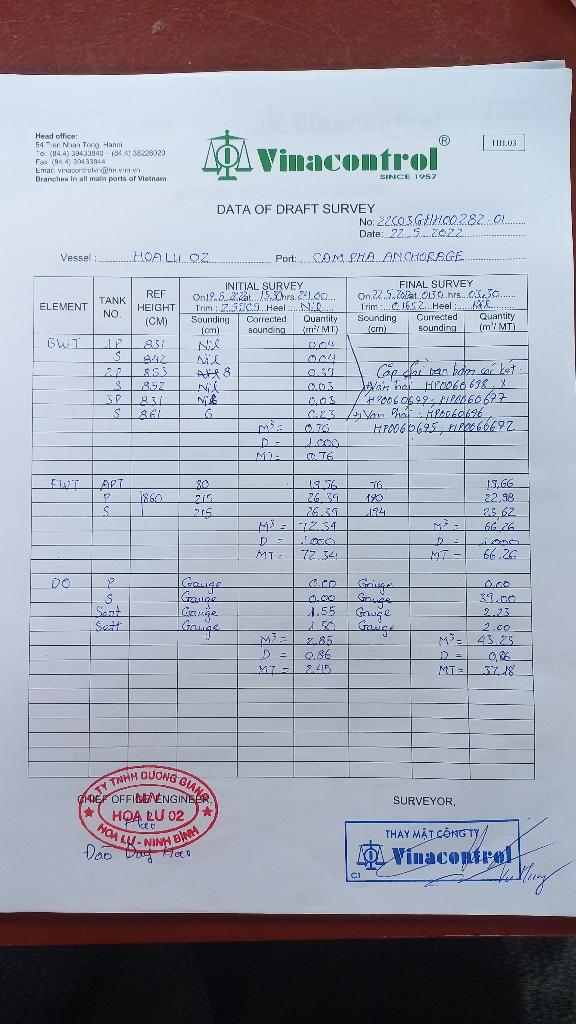 Head office:
54 Tran Nhan Tong, Hanoi
Tel: (84.4) 39433840 – (84.4) 38226020
Fax: (84.4) 39433844
Email: vinacontrolvn@hn.vnn.vn
Branches in all main ports of Vietnam
Vinacontrol ®
SINCE 1957
HH.03
DATA OF DRAFT SURVEY
No: 22C03GHH00282-01
Date: 22.5.2022
Vessel: HOA LU 02 Port: CAM PHA ANCHORAGE
ELEMENT TANK NO. REF HEIGHT (CM) INITIAL SURVEY FINAL SURVEY
On 19.5.2022 at hrs. On 22.5.2022 at 0130 hrs. 03.30
Trim: Heel: Nil Trim: 0.1652 Heel: Nil
Sounding (cm) Corrected sounding Quantity (m³/ MT) Sounding (cm) Corrected sounding Quantity (m³/ MT)
BWT 1P 831 Nil 0.04
S 842 Nil 0.04
2P 853 8 0.37 Cặp chì van bơm
S 852 Nil 0.03 HP0060698
3P 831 Nil 0.03 HP0060699, HP0060697
S 861 6 0.23 + Van Phải: HP0060696,
M³ = 0.76 HP0060695, HP0060692
D = 1.000
MT = 0.76
FWT APT 80 19.56 76 19.66
P 860 215 26.39 190 22.98
S 215 26.39 194 23.62
M³ = 72.34 M³ = 66.26
D = 1.000 D = 1.000
MT = 72.34 MT = 66.26
DO P Gauge 0.00 Gauge 0.00
S Gauge 0.00 Gauge 39.00
Gauge 1.55 Gauge 2.23
Sett Gauge 1.30 Gauge 2.00
M³ = 2.85 M³ = 43.23
D = 0.86 D = 0.86
MT = 2.45 MT = 37.18
CHIEF OFFICER/ENGINEER, SURVEYOR,
TY TNHH DƯƠNG GIANG
HOA LƯ 02
HOA LƯ - NINH BÌNH
Đào Duy Hào
THAY MẶT CÔNG TY
Vinacontrol
C1